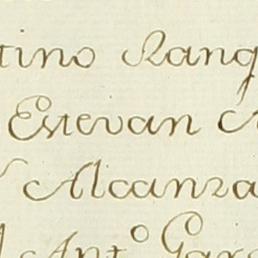 tino Rang
Estevan A
Alcanza
Ant.º Garc